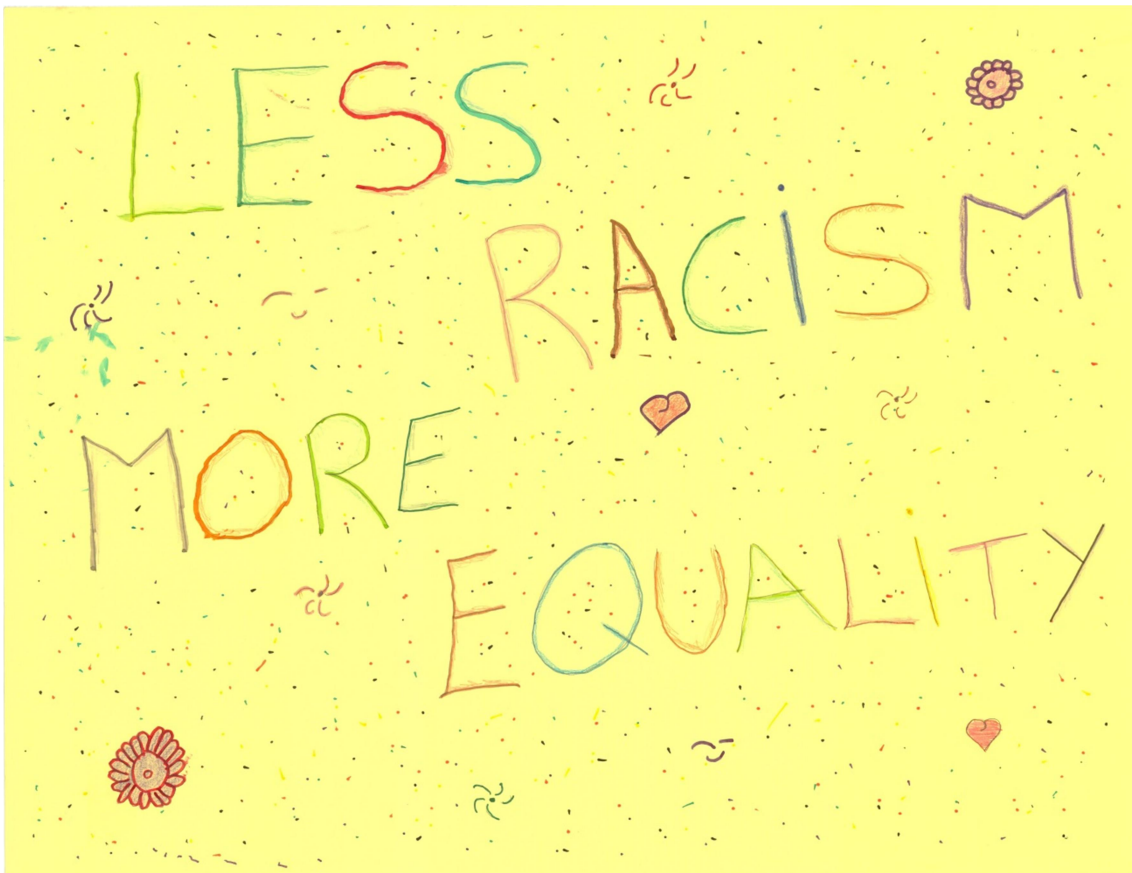 LESS
RACiSM
MORE
EQUALITY